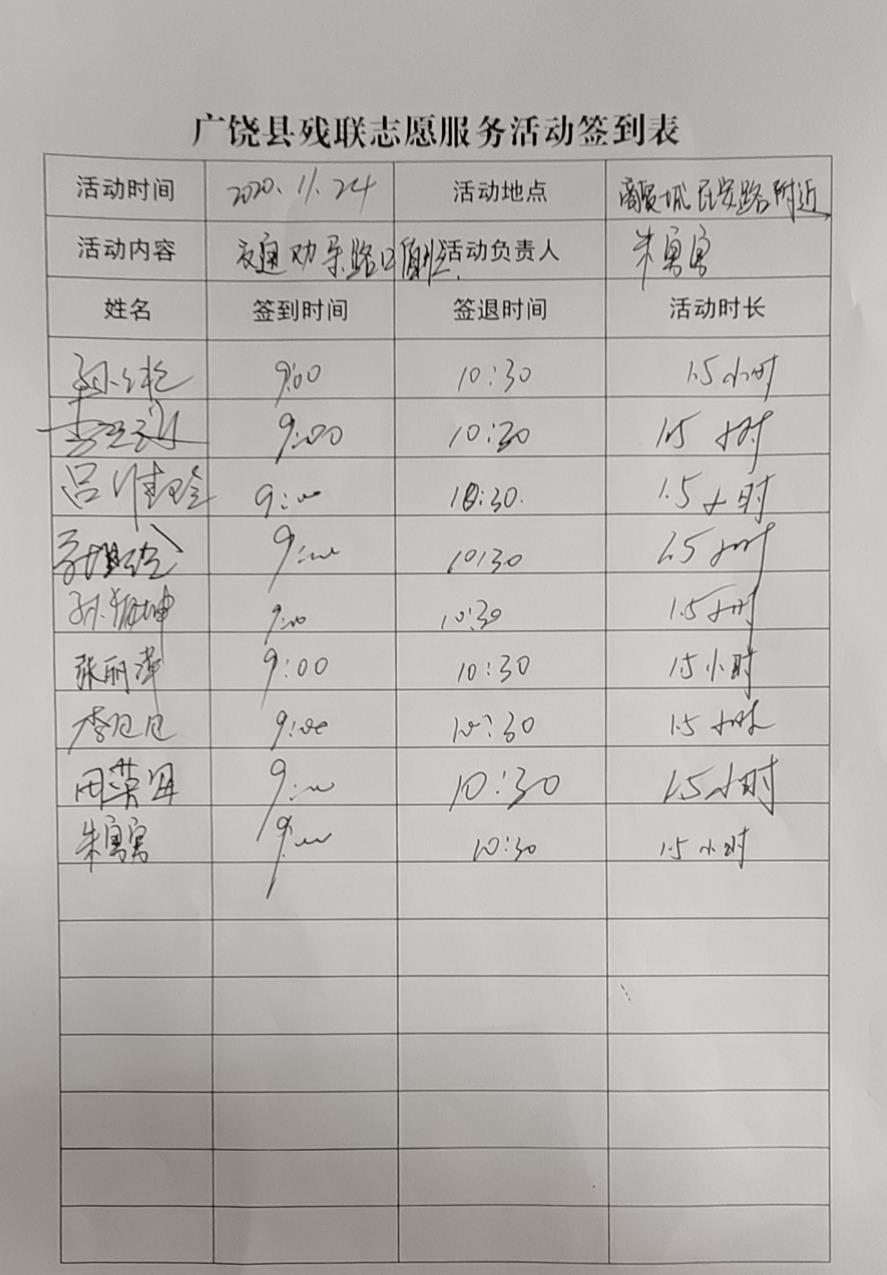 广饶县残联志愿服务活动签到表
活动时间 2020.11.24 活动地点 商贸城民安路附近
活动内容 交通劝导路口值班. 活动负责人 朱寓寓
姓名 签到时间 签退时间 活动时长
9:00 10:30 1.5小时
9:00 10:30 1.5小时
吕 9:00 10:30. 1.5小时
9:00 10:30 1.5小时
孙 坤 9:00 10:30 1.5小时
张丽萍 9:00 10:30 1.5小时
李 9:00 10:30 1.5小时
田英 9:00 10:30 1.5小时
朱寓寓 9:00 10:30 1.5小时